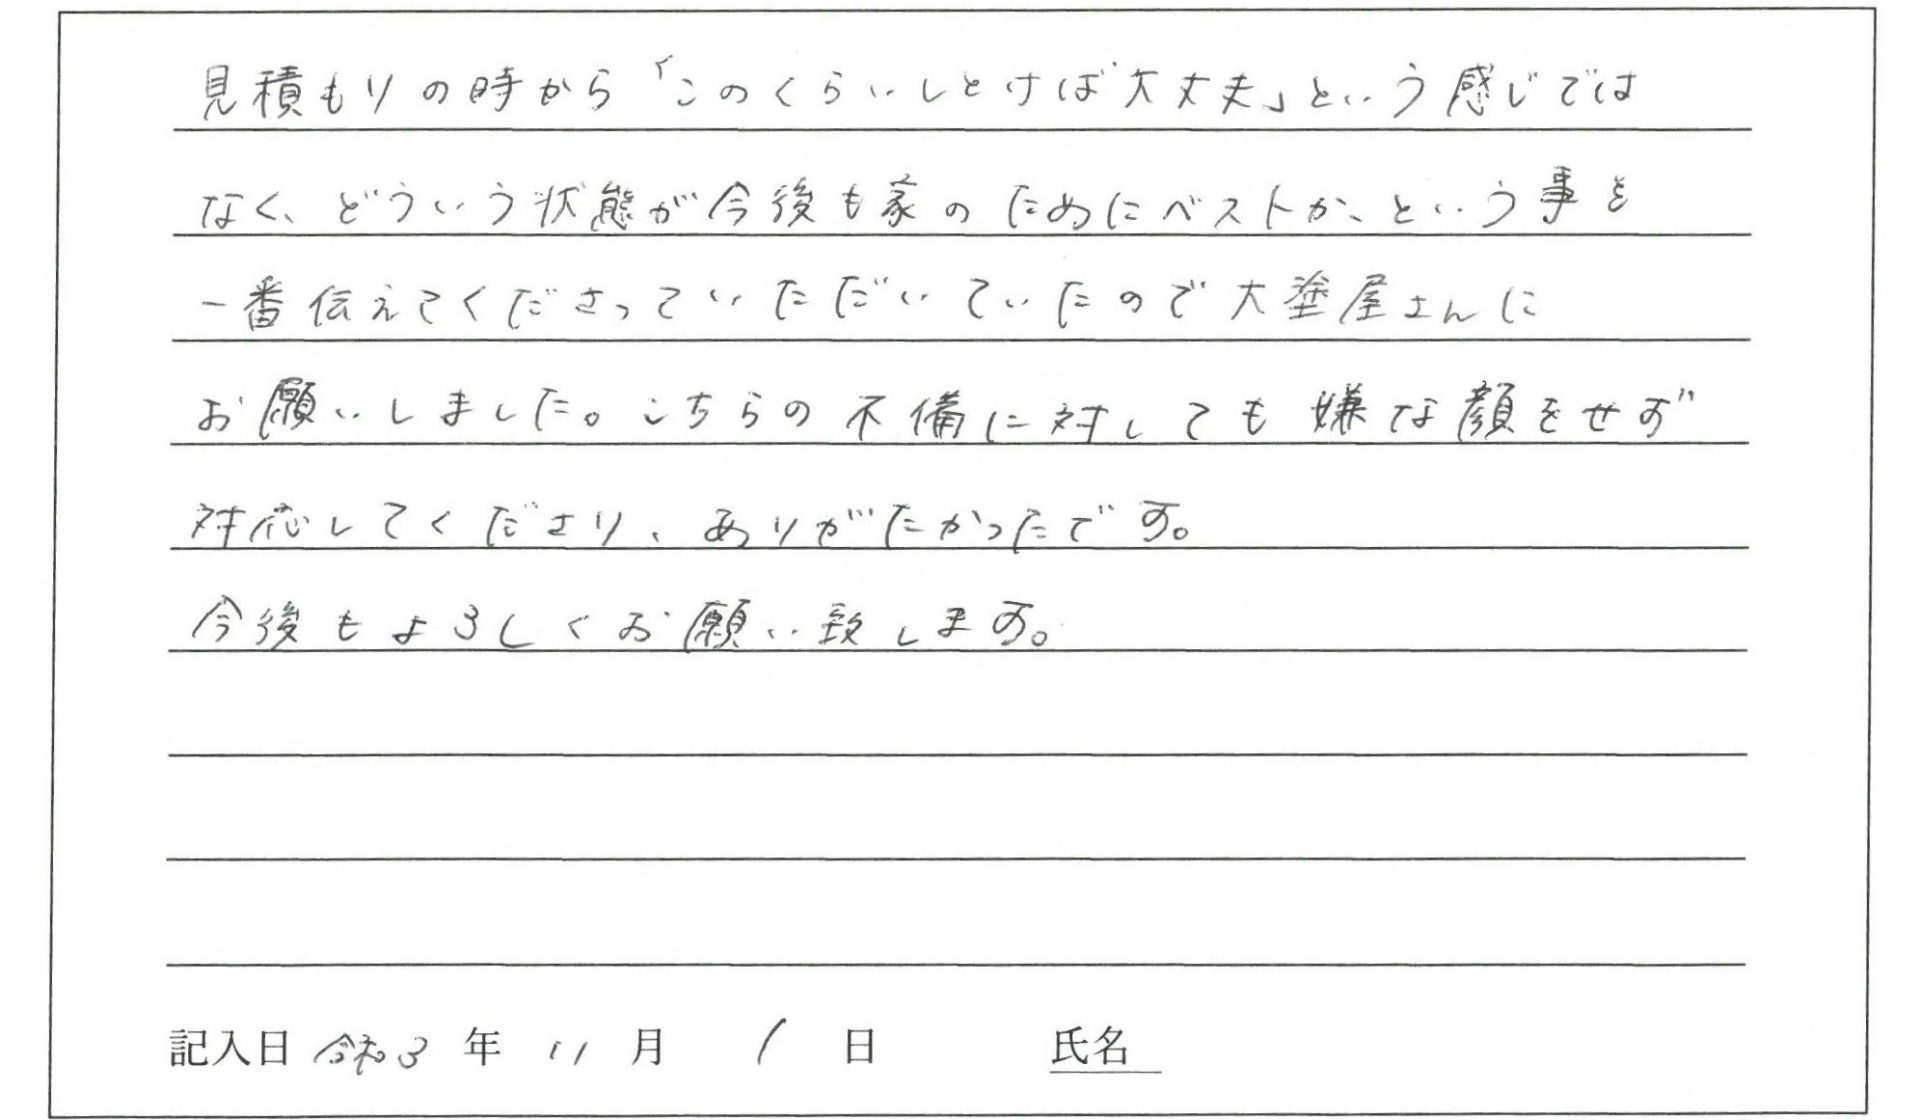 見積もりの時から「このくらいしとけば大丈夫」という感じでは
なく、どういう状態が今後も家のためにベストか、という事を
一番伝えてくださっていただいていたので大塗屋さんに
お願いしました。こちらの不備に対しても嫌な顔をせず
対応してくださり、ありがたかったです。
今後もよろしくお願い致します。
記入日 令和3年 11月 1日 氏名